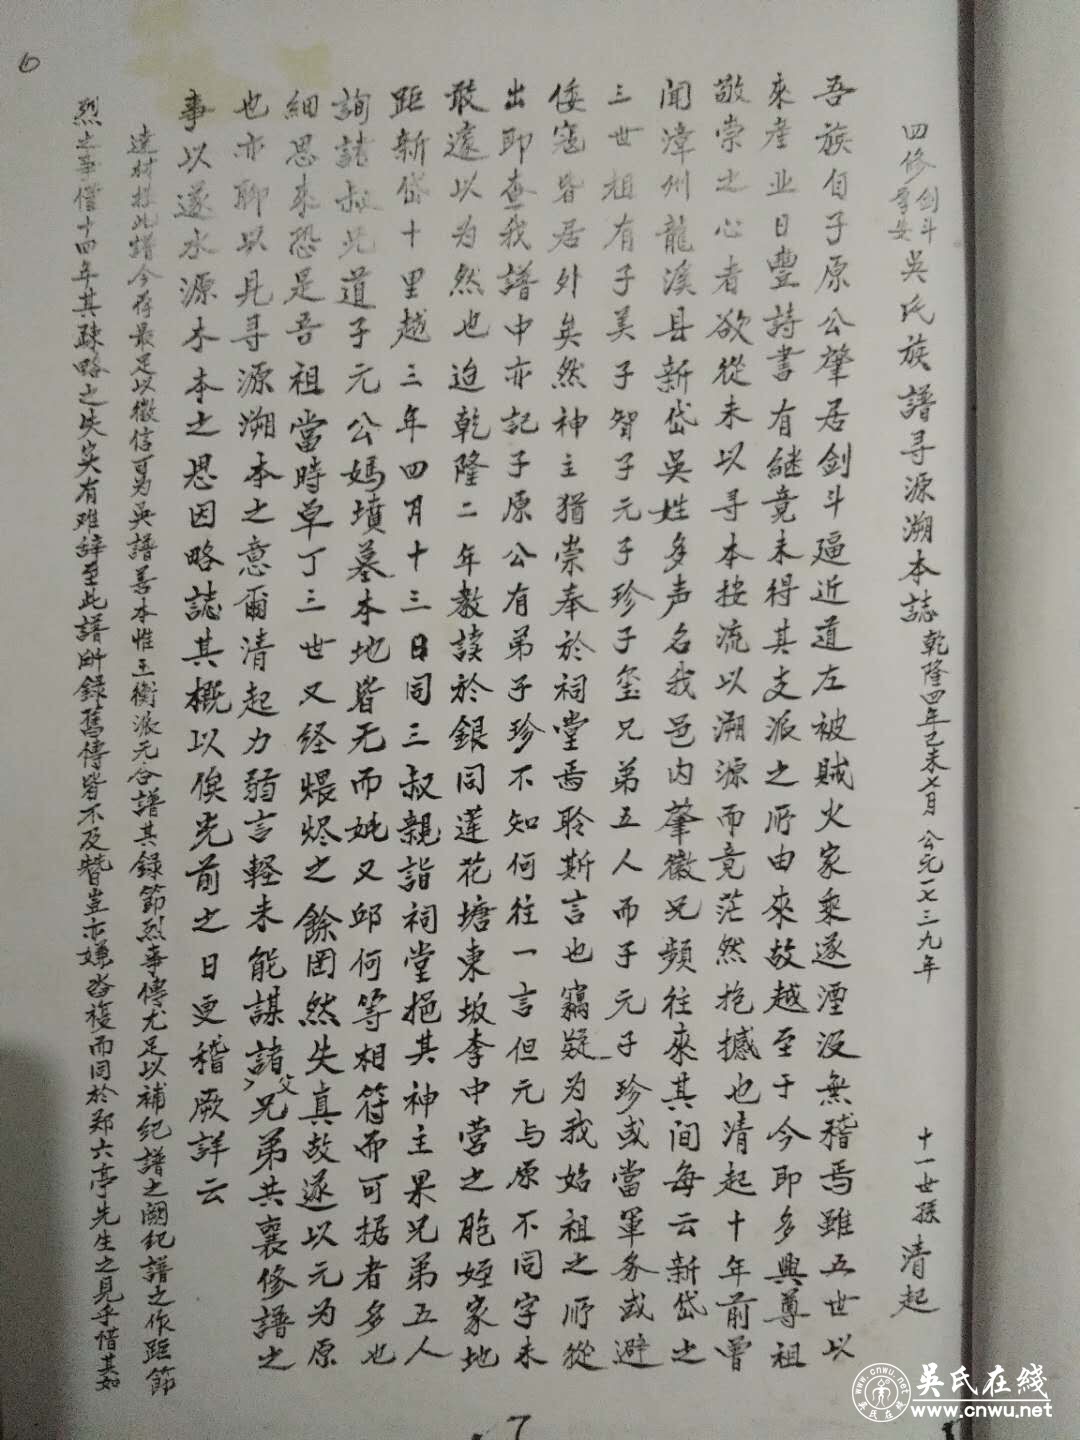 6
四修剑斗霞安吳氏族譜寻源溯本誌 乾隆四年己未七月 公元一七三九年 十一世孫 清起
吾族自子原公肇居剑斗逼近道左被賊火家乘遂湮没無稽焉雖五世以
來産业日豐詩書有継竟未得其支派之所由來故越至于今即多興尊祖
敬宗之心者欲從末以寻本按流以溯源而竟茫然抱撼也清起十年前曾
闻漳州龍溪县新岱吳姓多声名我邑内肇徽兄频往來其间每云新岱之
三世祖有子美子智子元子珍子玺兄弟五人而子元子珍或當軍务或避
倭寇皆居外矣然神主猶崇奉於祠堂焉聆斯言也竊疑为我始祖之所從
出即查我譜中亦記子原公有弟子珍不知何往一言但元与原不同字未
敢遽以为然也迨乾隆二年教读於銀同莲花塘東坂李中营之胞姪家地
距新岱十里越三年四月十三日同三叔親詣祠堂挹其神主果兄弟五人
詢諸叔兄道子元公媽墳墓本地皆无而妣又邱何等相符而可据者多也
細思來恐是吾祖當時草了三世又经煨烬之餘罔然失真故遂以元为原
也亦聊以見寻源溯本之意爾清起力弱言軽未能謀諸父兄弟共襄修譜之
事以遂水源木本之思因略誌其概以俟光前之日更稽厥詳云
達材按此譜今存最足以徵信可为吳譜善本惟玉衡派元合譜其録節烈事傳尤足以補紀譜之阙紀譜之作距節
烈之事僅十四年其疎略之失实有难辞至此譜所錄舊傳皆不及贊豈亦嫌沓複而同於郑六亭先生之見乎惜其如
7
吳氏在綫
www.cnwu.net